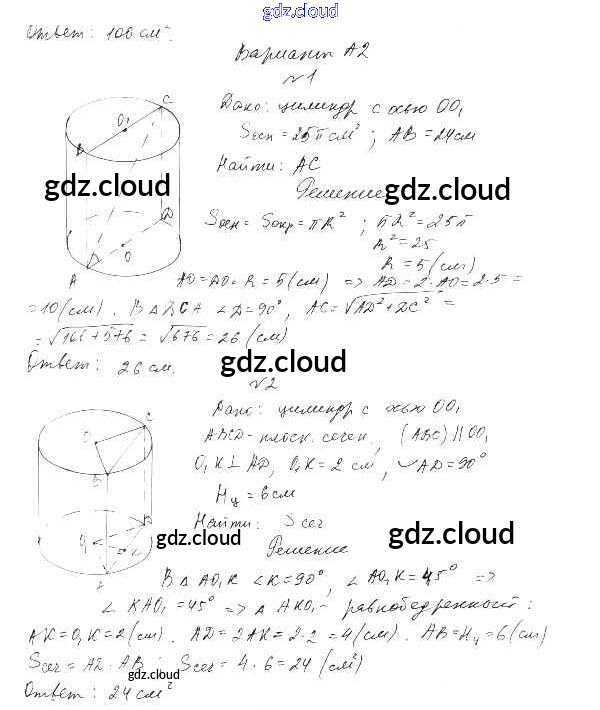 gdz.cloud
Ответ: 100 см².
Вариант А2
№1
Дано: цилиндр с осью OO₁
Sосн = 25π см²; AB = 24 см
Найти: AC
gdz.cloud
Решение
gdz.cloud
Sосн = Sокр = πR²; πR² = 25π
R² = 25
R = 5 (см)
AO = R = 5 (см) => AD = 2·AO = 2·5 =
= 10 (см). В △DCA ∠D = 90°, AC = √AD² + DC² =
= √100 + 576 = √676 = 26 (см)
Ответ: 26 см.
gdz.cloud
№2
Дано: цилиндр с осью OO₁
ABCD - плоск. сечен, (ABC) || OO₁
O₁K ⊥ AD, O₁K = 2 см, ◡AD = 90°
gdz.cloud
Hц = 6 см
Найти: Sсег
gdz.cloud
gdz.cloud
Решение
В △AO₁K ∠K = 90°, ∠AO₁K = 45° =>
∠KAO₁ = 45° => △AKO₁ - равнобедренный:
AK = O₁K = 2 (см). AD = 2AK = 2·2 = 4 (см). AB = Hц = 6 (см)
Sсег = AD·AB; Sсег = 4·6 = 24 (см²)
gdz.cloud
Ответ: 24 см²